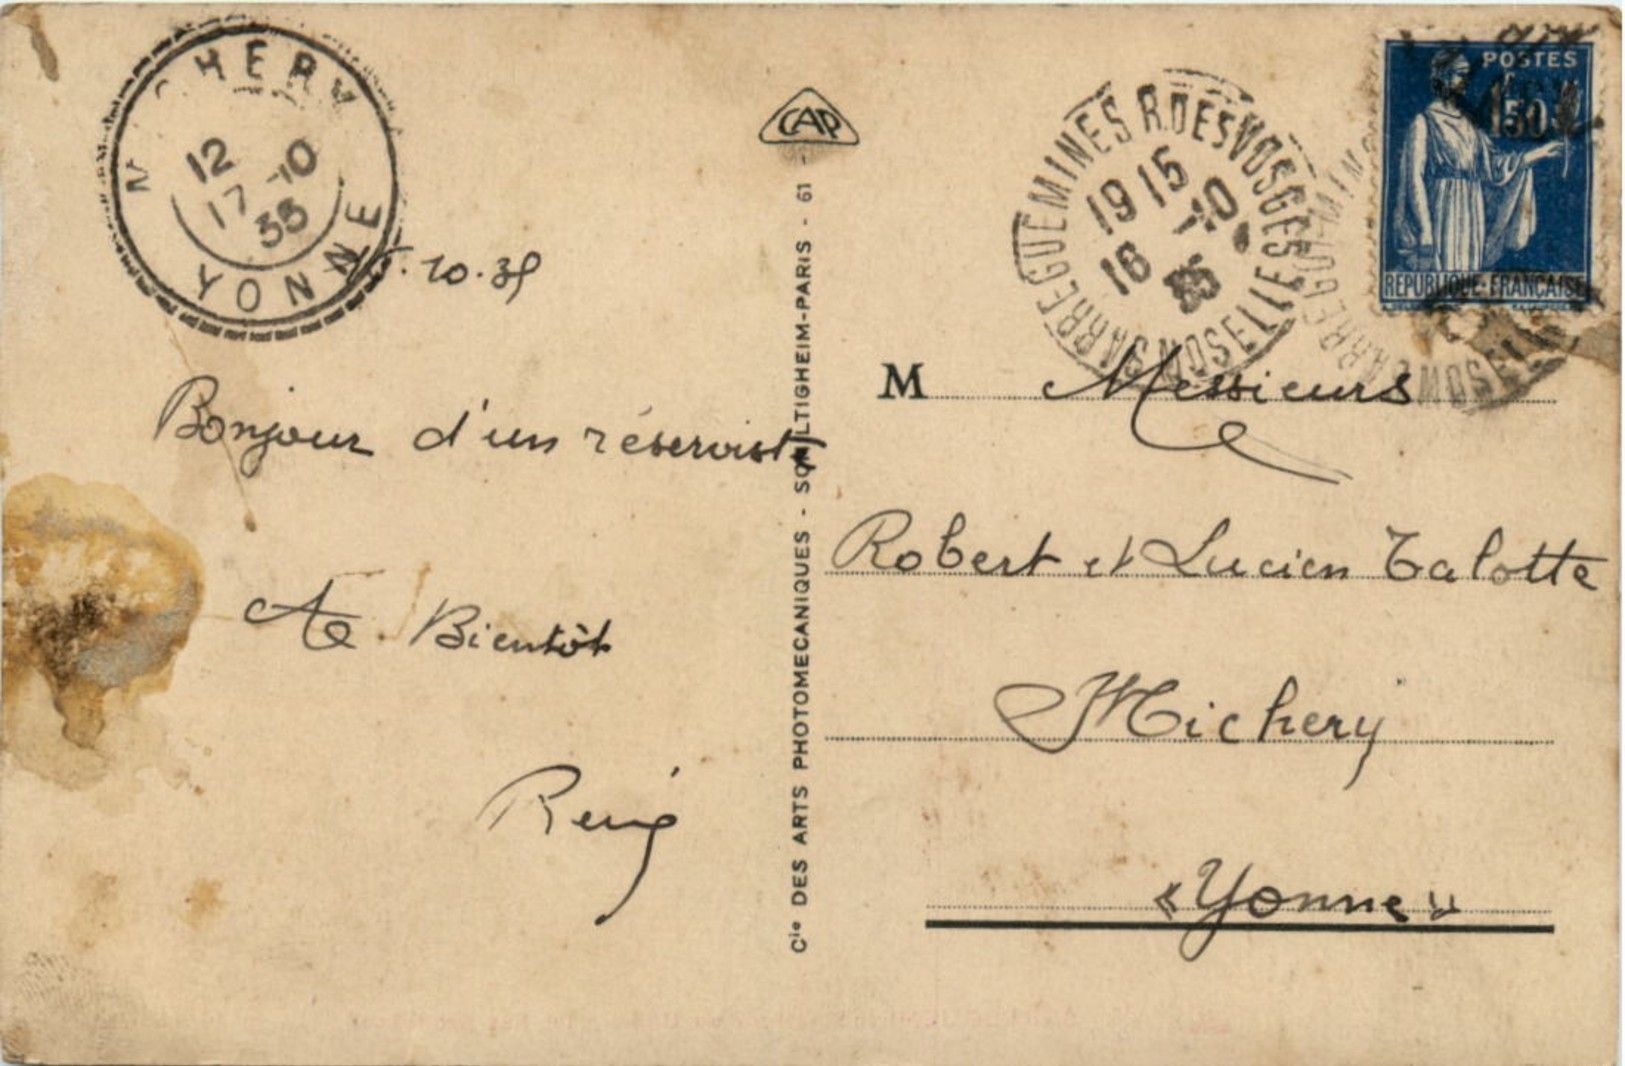 MICHERY
12
17 -10
35
YONNE
10.35
Bonjour d'un réserviste
A Bientôt
René
CAP
Cie DES ARTS PHOTOMECANIQUES - SCHILTIGHEIM-PARIS - 61 -
SARREGUEMINES R.DES VOSGES
19 15
16 -10
35
MOSELLE
POSTES
1F50
REPUBLIQUE-FRANCAISE
SARREGUEMINES
MOSELLE
M Messieurs
Robert et Lucien Talotte
Michery
«Yonne»